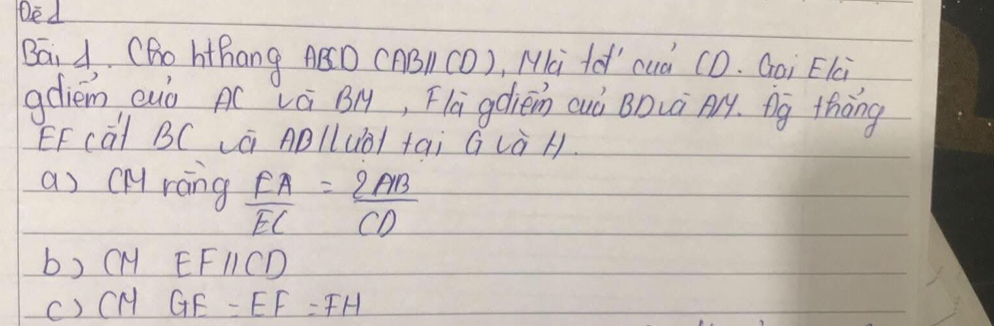 Đề 1
Bài 1. Cho hthang ABCD (AB//CD), M là tđ' của CD. Gọi E là
gđiểm của AC và BM, F là gđiểm của BD và AM. Đg thẳng
EF cắt BC và AD llượt tại G và H.
a) CM rằng EA/EC = 2AB/CD
b) CM EF//CD
c) CM GE = EF = FH